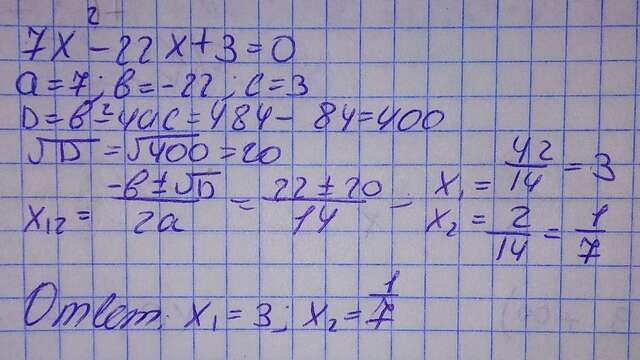 7x² - 22x + 3 = 0
a = 7; в = -22; c = 3
D = в² - 4ac = 484 - 84 = 400
√D = √400 = 20
x₁₂ = (-в ± √D)/2a = (22 ± 20)/14 - x₁ = 42/14 = 3
x₂ = 2/14 = 1/7
Ответ: x₁ = 3; x₂ = 1/7